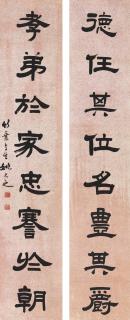 德任其位名豊其爵
孝弟於家忠謇於朝